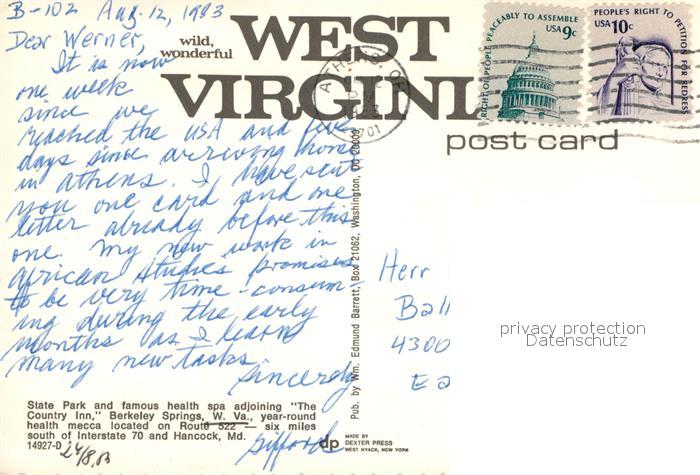 B-102 Aug. 12, 1983
Dear Werner,
It is now
one week
since we
reached the USA and five
days since arriving home
in Athens. I have sent
you one card and one
letter already before this
one. My new work in
African Studies promises
to be very time-consum-
ing during the early
months as I learn
many new tasks.
Sincerely
Gifford
wild,
wonderful
WEST
VIRGINI
post card
RIGHT OF PEOPLE PEACEABLY TO ASSEMBLE
USA 9c
PEOPLE'S RIGHT TO PETITION FOR REDRESS
USA 10c
ATHENS, OH
701
Pub. by Wm. Edmund Barrett, Box 21062, Washington, DC 20009
Herr
Ball
4300
Ea
privacy protection
Datenschutz
State Park and famous health spa adjoining "The
Country Inn," Berkeley Springs, W. Va., year-round
health mecca located on Route 522 — six miles
south of Interstate 70 and Hancock, Md.
14927-D
24/8.83
dp MADE BY
DEXTER PRESS
WEST NYACK, NEW YORK